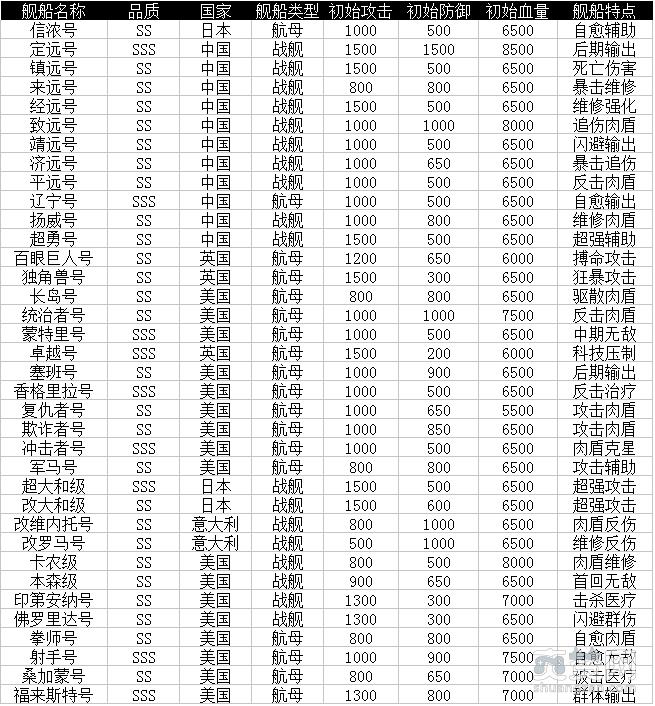 舰船名称 品质 国家 舰船类型 初始攻击 初始防御 初始血量 舰船特点
信浓号 SS 日本 航母 1000 500 6500 自愈辅助
定远号 SSS 中国 战舰 1500 1500 8500 后期输出
镇远号 SS 中国 战舰 1500 500 6500 死亡伤害
来远号 SS 中国 战舰 800 800 6500 暴击维修
经远号 SS 中国 战舰 1500 500 6500 维修强化
致远号 SS 中国 战舰 1000 1000 8000 追伤肉盾
靖远号 SS 中国 战舰 1000 500 6500 闪避输出
济远号 SS 中国 战舰 1000 650 6500 暴击追伤
平远号 SS 中国 战舰 1000 500 6500 反击肉盾
辽宁号 SSS 中国 航母 1000 500 6500 自愈输出
扬威号 SS 中国 战舰 1000 800 6500 维修肉盾
超勇号 SS 中国 战舰 1500 500 6500 超强辅助
百眼巨人号 SS 英国 航母 1200 650 6000 搏命攻击
独角兽号 SS 英国 航母 1500 300 6500 狂暴攻击
长岛号 SS 美国 航母 800 800 6500 驱散肉盾
统治者号 SS 美国 航母 1000 1000 7500 反击肉盾
蒙特里号 SSS 美国 航母 1000 500 6500 中期无敌
卓越号 SSS 英国 航母 1500 200 6000 科技压制
塞班号 SS 美国 航母 1000 900 6500 后期输出
香格里拉号 SSS 美国 航母 1000 500 6500 反击治疗
复仇者号 SS 美国 航母 1000 650 5500 攻击肉盾
欺诈者号 SS 美国 航母 1000 850 6500 攻击肉盾
冲击者号 SSS 美国 航母 1000 500 6500 肉盾克星
军马号 SS 美国 航母 800 800 6500 攻击辅助
超大和级 SSS 日本 战舰 1500 500 6500 超强攻击
改大和级 SS 日本 战舰 1500 600 6500 超强攻击
改维内托号 SS 意大利 战舰 800 1000 6500 肉盾反伤
改罗马号 SS 意大利 战舰 500 1000 6500 维修反伤
卡农级 SS 美国 战舰 800 500 8000 肉盾维修
本森级 SS 美国 战舰 900 650 6500 首回无敌
印第安纳号 SS 美国 战舰 1300 300 7000 击杀医疗
佛罗里达号 SS 美国 战舰 1300 300 6500 闪避群伤
拳师号 SS 美国 航母 800 800 6500 自愈肉盾
射手号 SSS 美国 航母 1000 900 7500 自愈无敌
桑加蒙号 SS 美国 航母 800 650 7000 被击医疗
福来斯特号 SSS 美国 航母 1300 800 7000 群体输出